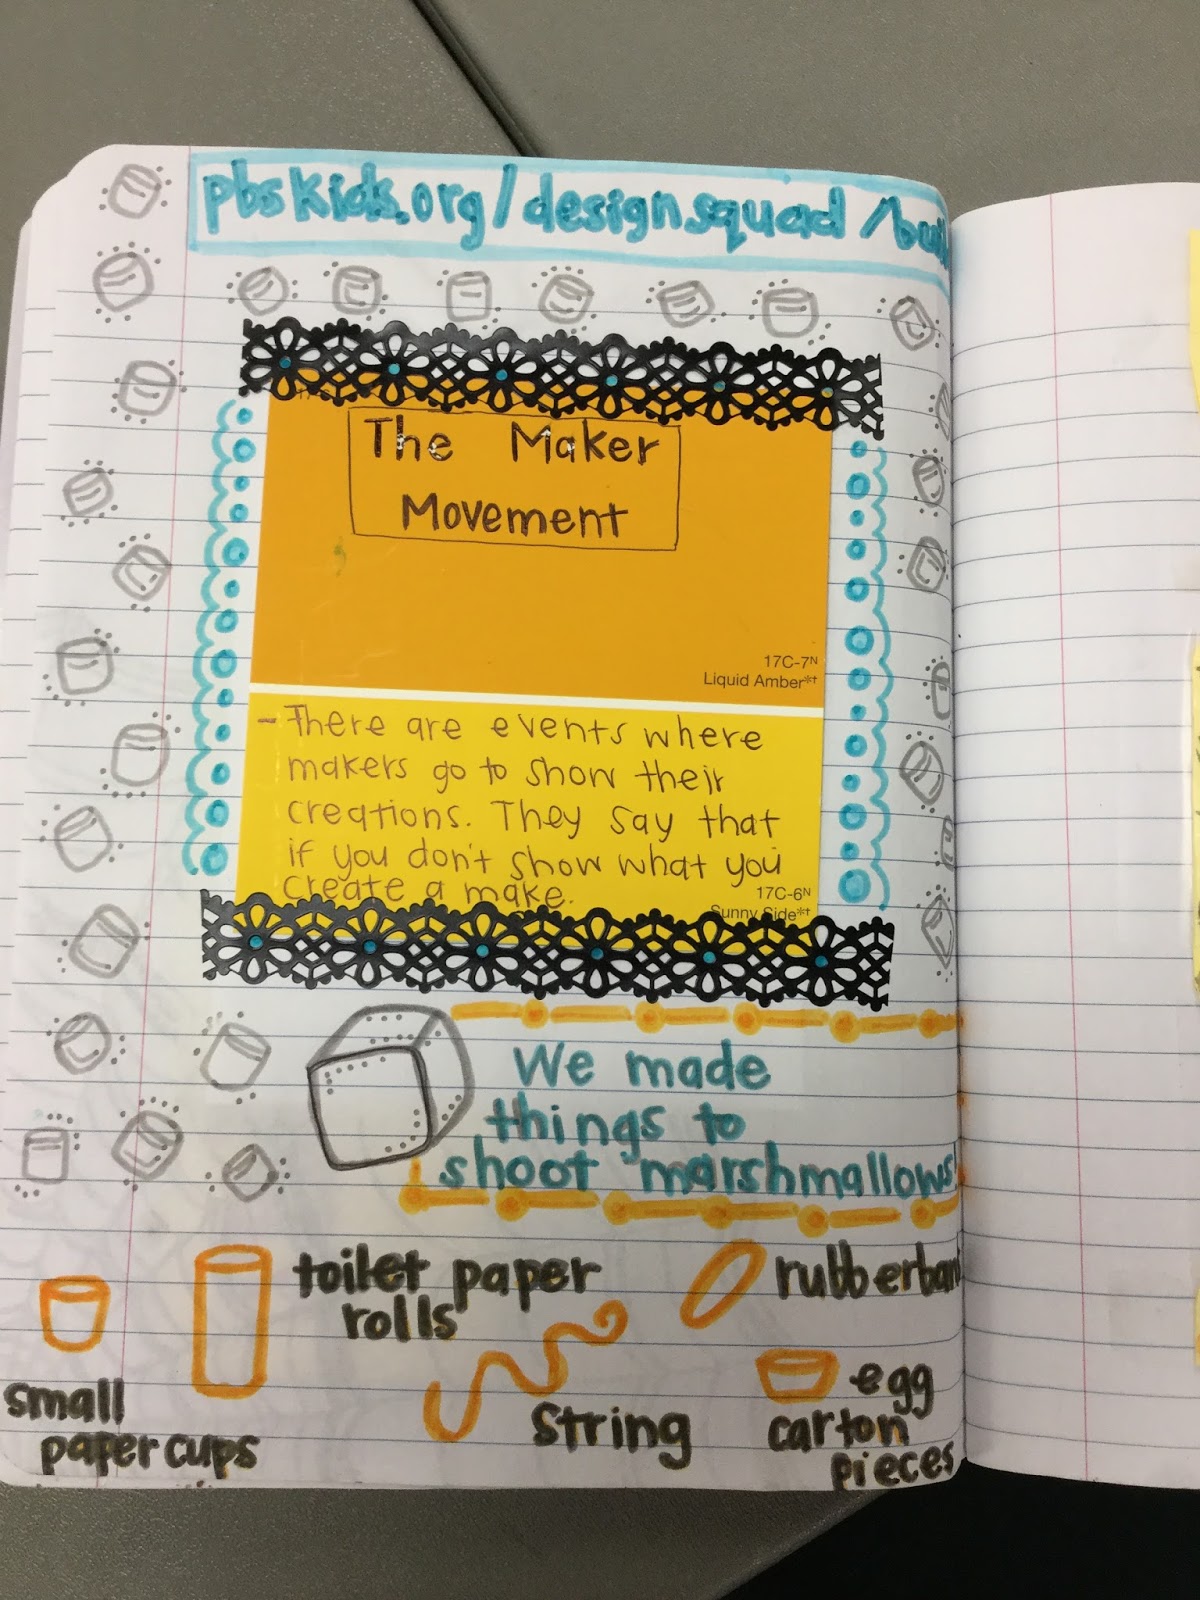 pbskids.org/designsquad/buil
The Maker
Movement
17C-7N
Liquid Amber*†
- There are events where
makers go to show their
creations. They say that
if you don't show what you
create a make.
17C-6N
Sunny Side*†
We made
things to
shoot marshmallows!
toilet paper
rolls
rubberban
small
paper cups
String
egg
carton
pieces